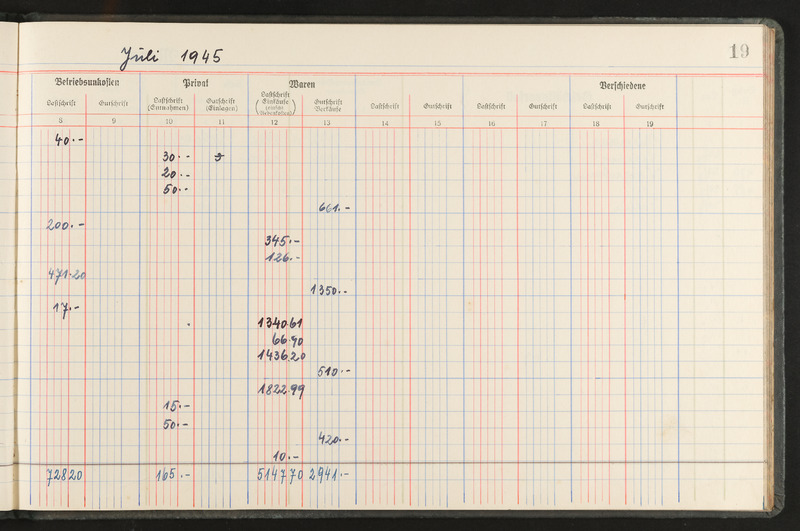 Juli 1945
19
Betriebsunkosten Privat Waren Verschiedene
Lastschrift Gutschrift Lastschrift (Entnahmen) Gutschrift (Einlagen) Lastschrift (Einkäufe Gutschrift Verkäufe Lastschrift Gutschrift Lastschrift Gutschrift Lastschrift Gutschrift
8 9 10 11 12 13 14 15 16 17 18 19
40.-
30.-
20.-
50.-
661.-
200.-
345.-
126.-
471.20
1350.-
17.-
1340.61
66.90
1436.20
510.-
1822.99
15.-
50.-
420.-
10.-
728 20 165.- 5147 70 2941.-